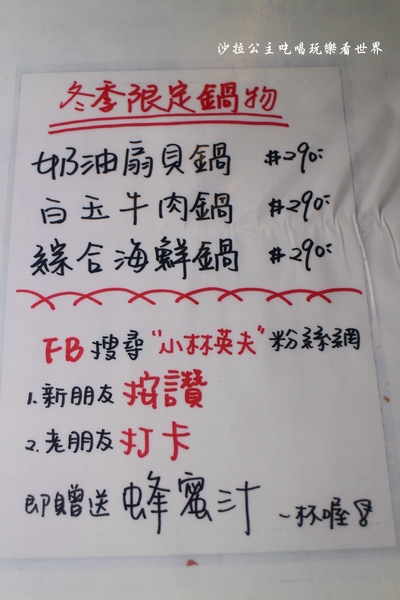 沙拉公主吃喝玩樂看世界
冬季限定鍋物
奶油扇貝鍋 #290:
白玉牛肉鍋 #290:
綜合海鮮鍋 #290:
FB搜尋"小林英夫"粉絲網
1.新朋友按讚
2.老朋友打卡
即贈送蜂蜜汁一杯喔